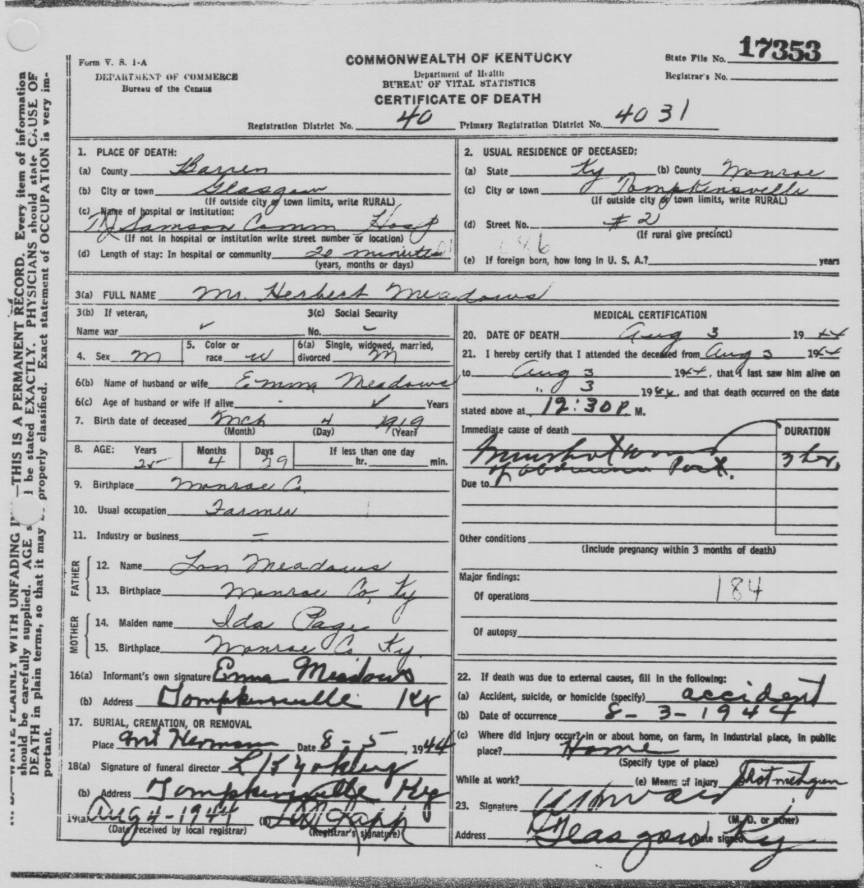 17353
Form V. S. 1-A
DEPARTMENT OF COMMERCE
Bureau of the Census
COMMONWEALTH OF KENTUCKY
Department of Health
BUREAU OF VITAL STATISTICS
CERTIFICATE OF DEATH
State File No.
Registrar's No.
Registration District No. 40 Primary Registration District No. 4031
1. PLACE OF DEATH:
(a) County Barren
(b) City or town Glasgow
(If outside city or town limits, write RURAL)
(c) Name of hospital or institution:
TJ Samson Comm Hosp
(If not in hospital or institution write street number or location)
(d) Length of stay: In hospital or community 20 minutes
(years, months or days)
2. USUAL RESIDENCE OF DECEASED:
(a) State Ky (b) County Monroe
(c) City or town Tompkinsville
(If outside city or town limits, write RURAL)
(d) Street No. #2
(If rural give precinct)
(e) If foreign born, how long in U. S. A.? years
3(a) FULL NAME Mr. Herbert Meadows
3(b) If veteran,
Name war
3(c) Social Security
No.
4. Sex M
5. Color or
race W
6(a) Single, widowed, married,
divorced M
6(b) Name of husband or wife Emma Meadows
6(c) Age of husband or wife if alive - Years
7. Birth date of deceased Mch 4 1919
(Month) (Day) (Year)
8. AGE: Years Months Days If less than one day
25 4 29 hr. min.
9. Birthplace Monroe C.
10. Usual occupation Farmer
11. Industry or business =
FATHER
12. Name Lon Meadows
13. Birthplace Monroe Co, Ky
MOTHER
14. Maiden name Ida Page
15. Birthplace Monroe Co Ky.
16(a) Informant's own signature Emma Meadows
(b) Address Tompkinsville Ky
17. BURIAL, CREMATION, OR REMOVAL
Place Mt Herman Date 8-5, 1944
18(a) Signature of funeral director
(b) Address Tompkinsville Ky
19(a) Aug 4-1944 (b)
(Date received by local registrar) (Registrar's signature)
MEDICAL CERTIFICATION
20. DATE OF DEATH Aug 3 1944
21. I hereby certify that I attended the deceased from Aug 3 1944
to Aug 3 1944, that I last saw him alive on
" 3 1944 and that death occurred on the date
stated above at 12:30 P. M.
Immediate cause of death
DURATION
Gunshot wound 3 hrs,
of abdomen
Due to
Other conditions
(Include pregnancy within 3 months of death)
Major findings:
Of operations 184
Of autopsy
22. If death was due to external causes, fill in the following:
(a) Accident, suicide, or homicide (specify) accident
(b) Date of occurrence 8-3-1944
(c) Where did injury occur? in or about home, on farm, in industrial place, in public
place? Home
(Specify type of place)
While at work? (e) Means of injury
23. Signature
(M. D. or other)
Address Glasgow Ky Date signed
THIS IS A PERMANENT RECORD. Every item of information
should be carefully supplied. AGE should be stated EXACTLY. PHYSICIANS should state CAUSE OF
DEATH in plain terms, so that it may be properly classified. Exact statement of OCCUPATION is very im-
portant.